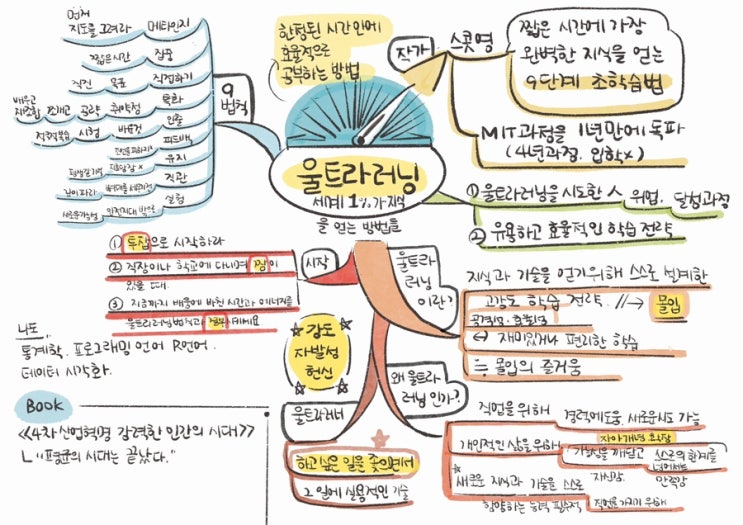 한정된 시간 안에
효율적으로
공부하는 방법
울트라러닝
세계 1% 가 지식
을 얻는 방법들
작가
스콧 영
짧은 시간에 가장
완벽한 지식을 얻는
9단계 초학습법
MIT 과정을 1년만에 독파
(4년과정. 입학x)
① 울트라러닝을 시도한 스 위업. 달성과정
② 유용하고 효율적인 학습 전략
9
법칙
먼저
지도를 그려라 메타인지
짧은시간 집중
직진 목표 직접하기
배우고
공략 취약점 특화
시험 바로것 인출
피드백
유지
직관
실험
시작
① 투잡으로 시작하라
② 직장이나 학교에 다니며 짬이
있을 때.
③ 지금까지 배움에 바친 시간과 에너지를
울트라러닝 법칙과 결부시키세요
울트라
러닝
이란?
지식과 기술을 얻기위해 스스로 설계한
고강도 학습 전략. //→ 몰입
공격성. 효율성
↔ 재미있거나 편리한 학습
≒ 몰입의 즐거움
왜 울트라
러닝 인가?
직업을 위해 경력에도움. 새로운시도 가능
개인적인 삶을 위해 자아개념 확장
가능성을 깨닫고 스스로의 한계를
넘어서는
새로운 지식과 기술을 스스로 자신감. 만족감
함양하는 능력 필수적 직업을 가지기 위해
강도
자발성
헌신
울트라러너
하고싶은 일을 좇으면서
그 일에 실용적인 기술
나도
통계학. 프로그래밍 언어 R언어.
데이터 시각화.
BOOK
<<4차 산업혁명 강력한 인간의 시대>>
ㄴ "평균의 시대는 끝났다."